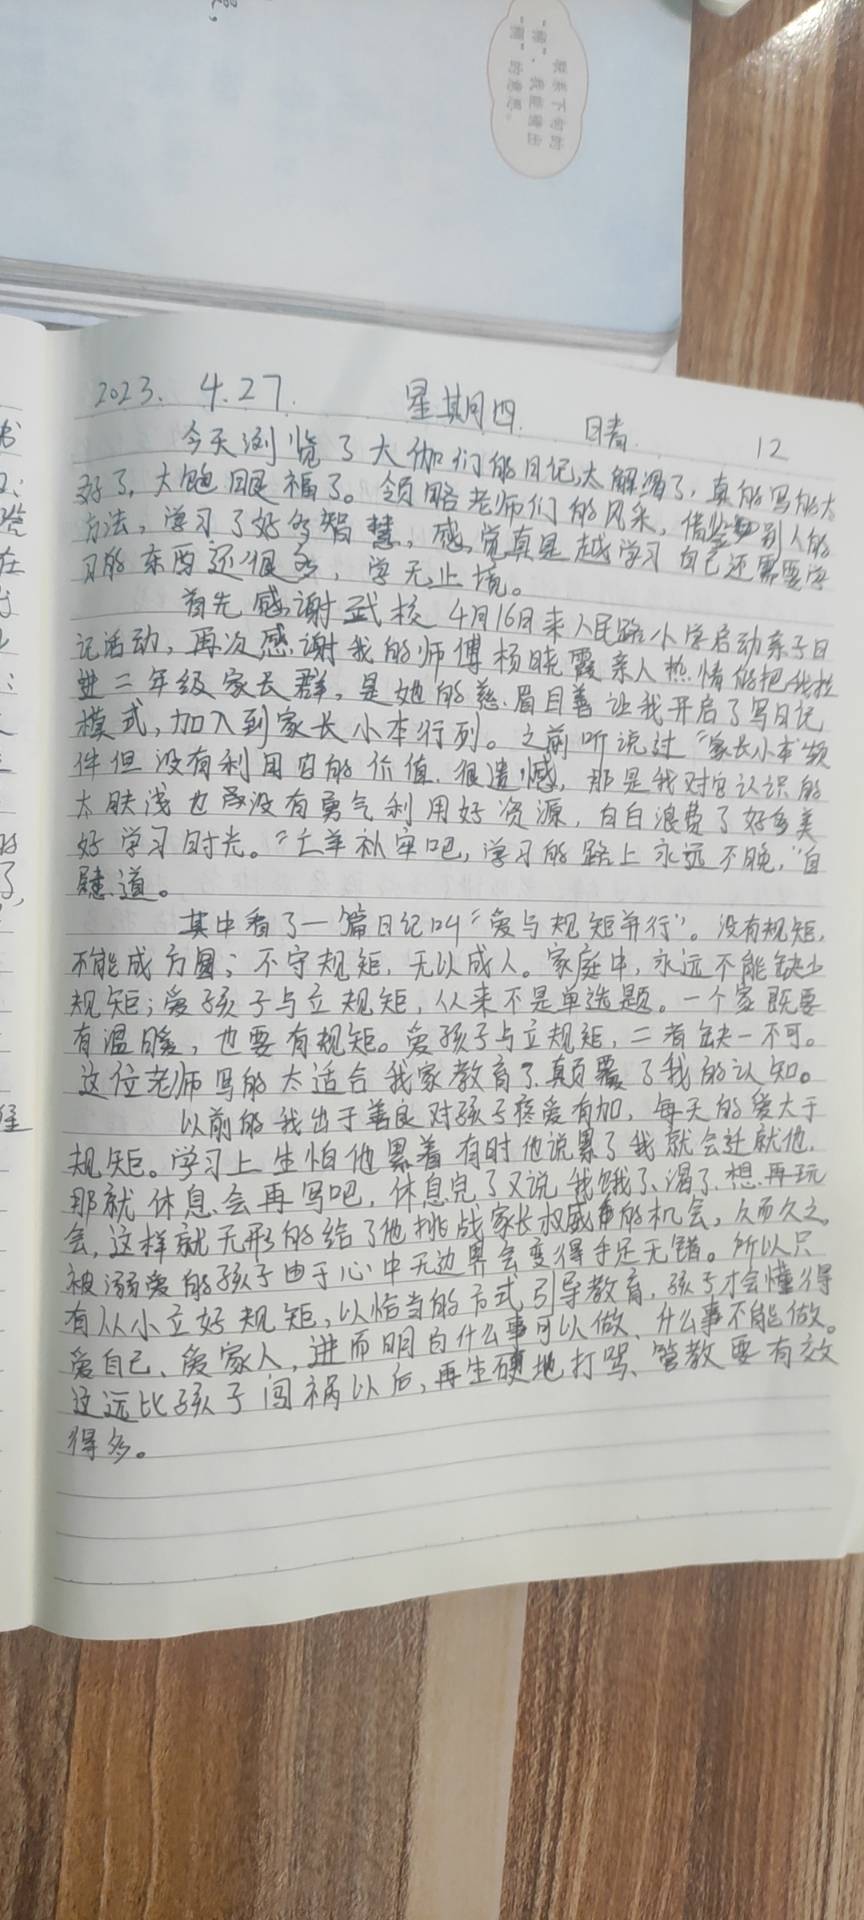 联系下句的
“　”，我能猜出
“　”的意思。
2023. 4.27. 星期四. 晴. 12
今天浏览了大伽们的日记太解渴了，真的写的太
好了，大饱眼福了。领略老师们的风采，借鉴别人的
方法，学习了好多智慧，感觉真是越学习自己还需要学
习的东西还很多，学无止境。
首先感谢武校4月16日来人民路小学启动亲子日
记活动，再次感谢我的师傅杨晓霞亲人热情的把我拉
进二年级家长群，是她的慈眉目善让我开启了写日记
模式，加入到家长小本行列。之前听说过“家长小本”软
件但没有利用它的价值.很遗憾，那是我对它认识的
太肤浅也没有勇气利用好资源，白白浪费了好多美
好学习时光。“亡羊补牢吧，学习的路上永远不晚，”自
道。
其中看了一篇日记叫“爱与规矩并行”。没有规矩，
不能成方圆；不守规矩，无以成人。家庭中，永远不能缺少
规矩；爱孩子与立规矩，从来不是单选题。一个家既要
有温暖，也要有规矩。爱孩子与立规矩，二者缺一不可。
这位老师写的太适合我家教育了.颠覆了我的认知。
以前的我出于善良对孩子疼爱有加，每天的爱大于
规矩。学习上生怕他累着有时他说累了我就会迁就他.
那就休息会再写吧，休息完了又说我饿了、渴了.想再玩
会，这样就无形的给了他挑战家长权威的机会，久而久之，
被溺爱的孩子由于心中无边界会变得手足无错。所以只
有从小立好规矩，以恰当的方式引导教育，孩子才会懂得
爱自己、爱家人，进而明白什么事可以做、什么事不能做。
这远比孩子闯祸以后，再生硬地打骂、管教要有效
得多。